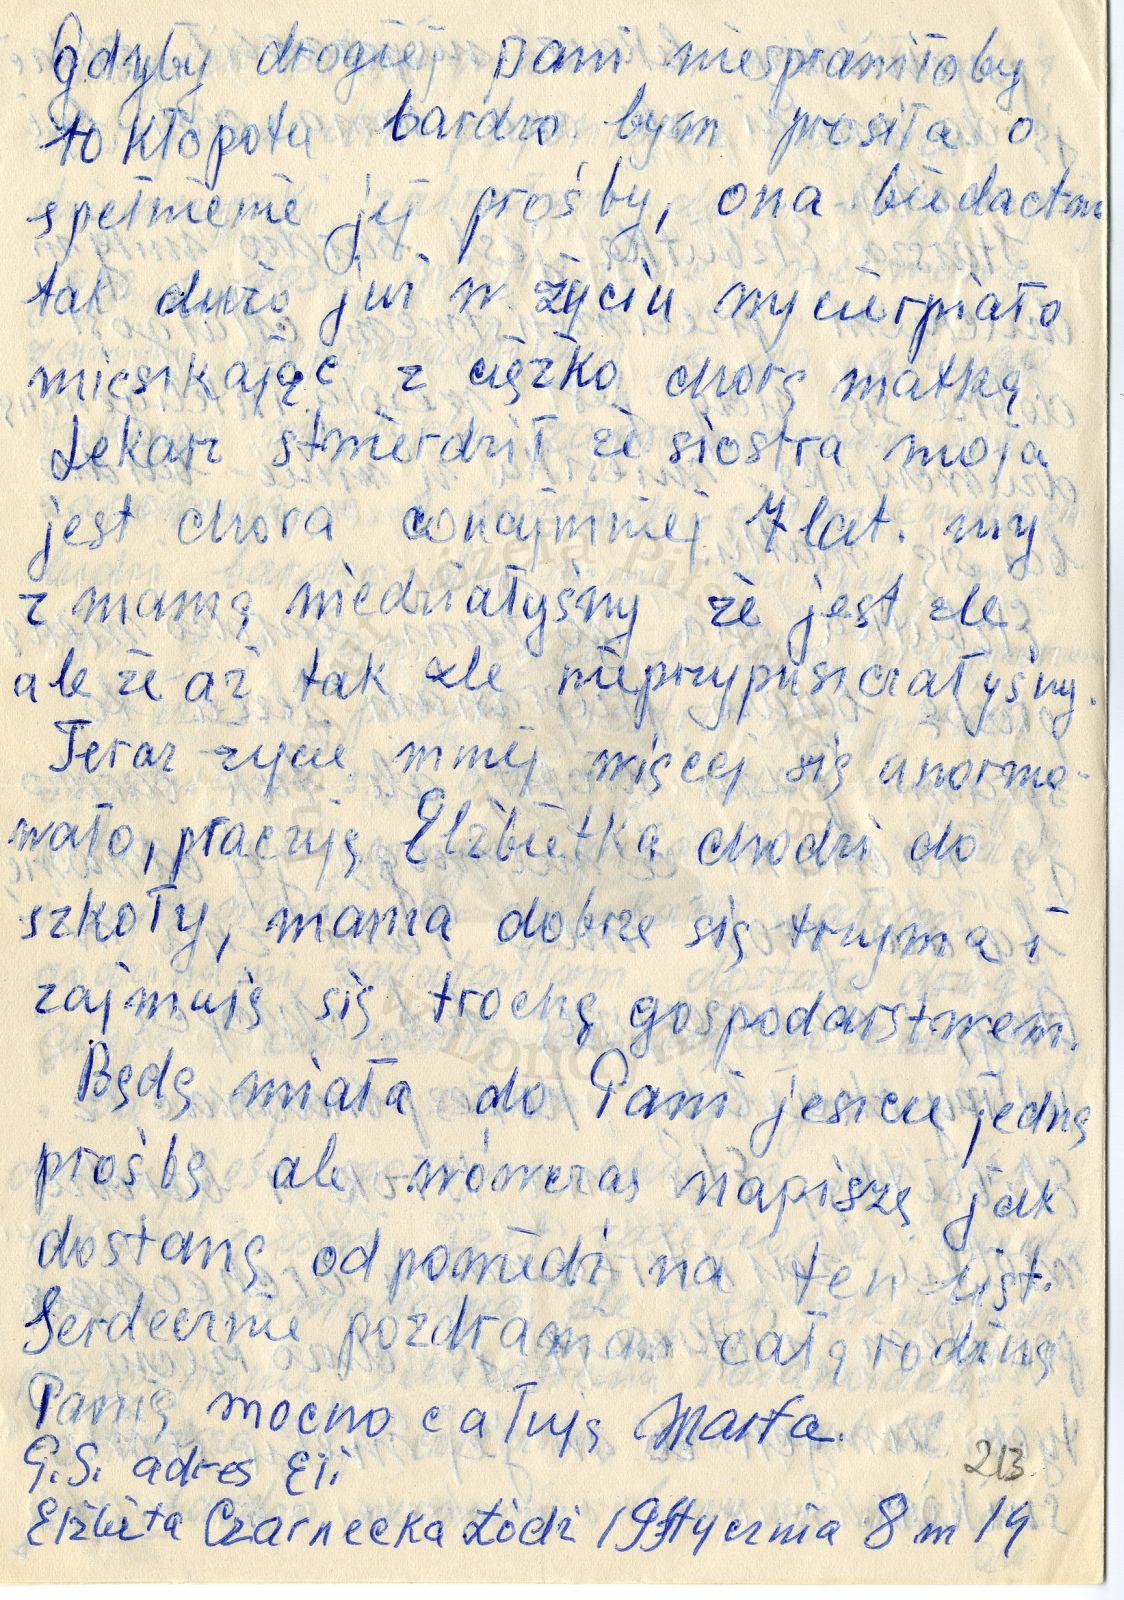 Gdyby drogiej Pani niesprawiłoby
to kłopotu bardzo bym prosiła o
spełnienie jej prośby, ona biedactwo
tak dużo już w życiu wycierpiało
mieszkając z ciężko chorą matką.
Lekarz stwierdził że siostra moja
jest chora conajmniej 7 lat. my
z mamą wiedziałyśmy że jest źle,
ale że aż tak źle nieprzypuszczałyśmy.
Teraz życie mniej więcej się unormo-
wało, pracuję Elżbietka chodzi do
szkoły, mama dobrze się trzyma i
zajmuję się trochę gospodarstwem.
Będę miała do Pani jeszcze jedną
prośbę ale wówczas napiszę jak
dostanę odpowiedź na ten list.
Serdecznie pozdrawiam całą rodzinę
Panią mocno całuję Marta.
P.S. adres Eli
213
Elżbieta Czarnecka Łódź 19 Stycznia 8 m 19